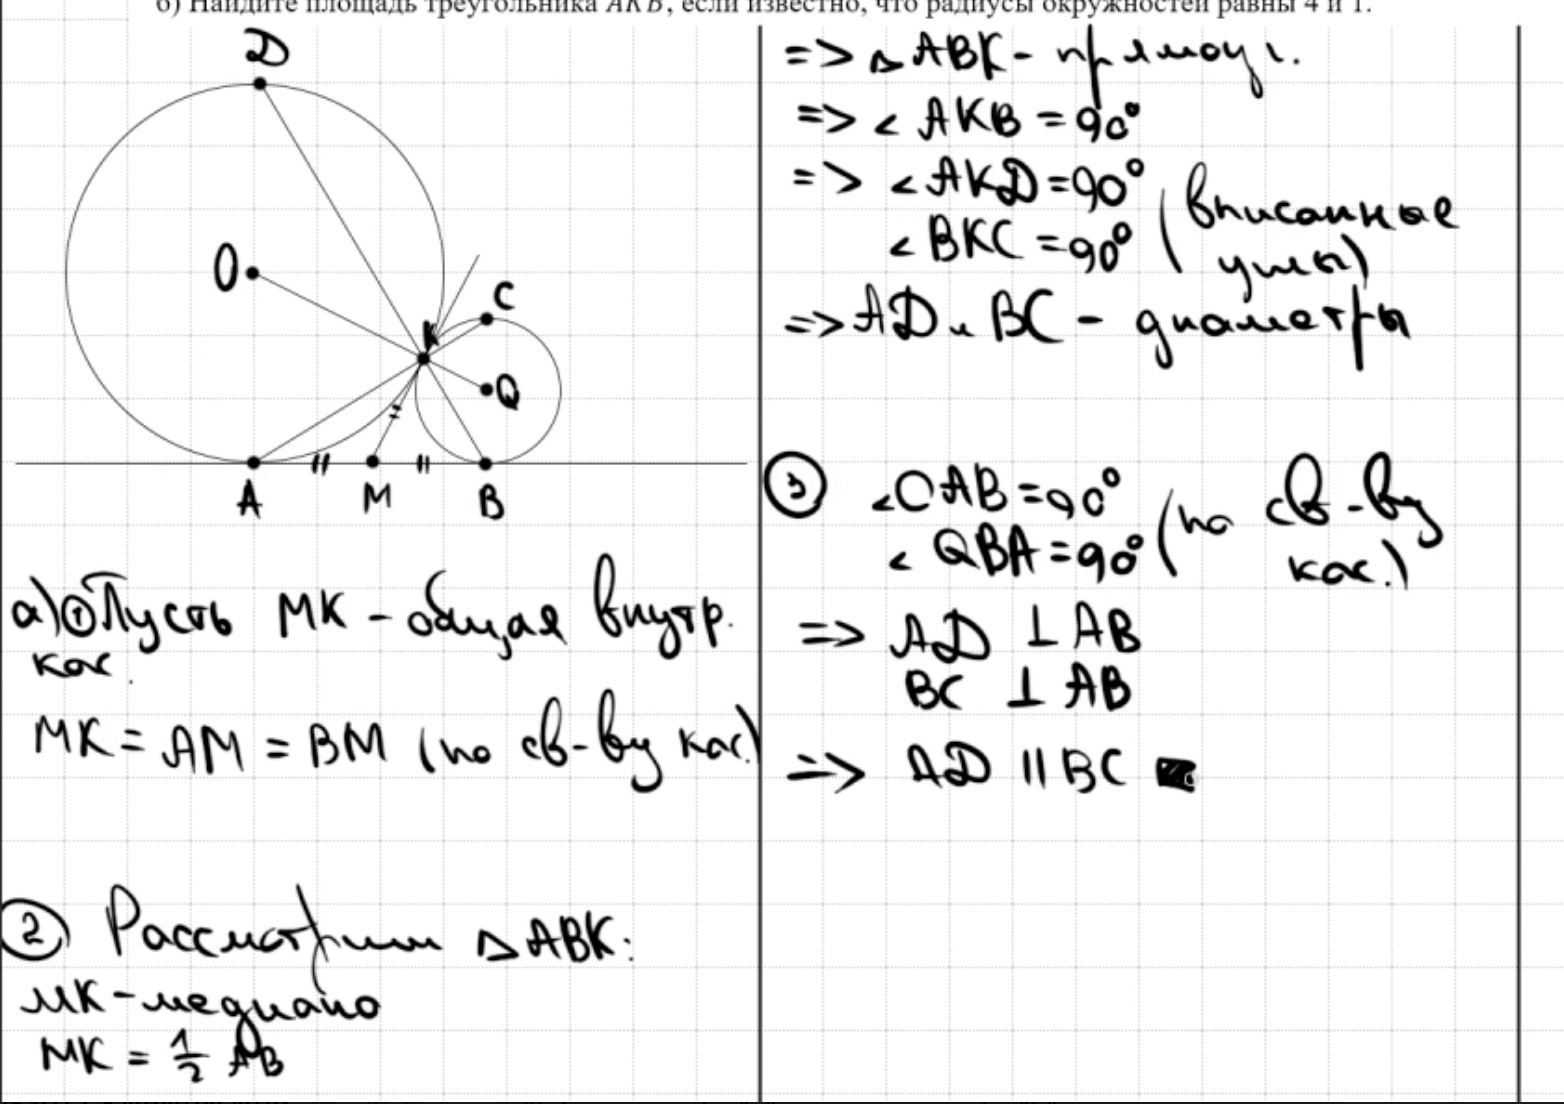 б) Найдите площадь треугольника AKB, если известно, что радиусы окружностей равны 4 и 1.
D
O
C
K
Q
A
M
B
а) ① Пусть MK - общая внутр.
кас.
MK = AM = BM (по св-ву кас.)
② Рассмотрим △ABK:
MK - медиана
MK = 1/2 AB
=> △ABK - прямоуг.
=> ∠AKB = 90°
=> ∠AKD = 90°
∠BKC = 90° (вписанные
углы)
=> AD и BC - диаметры
③ ∠OAB = 90°
∠QBA = 90° (по св-ву
кас.)
=> AD ⊥ AB
BC ⊥ AB
=> AD || BC